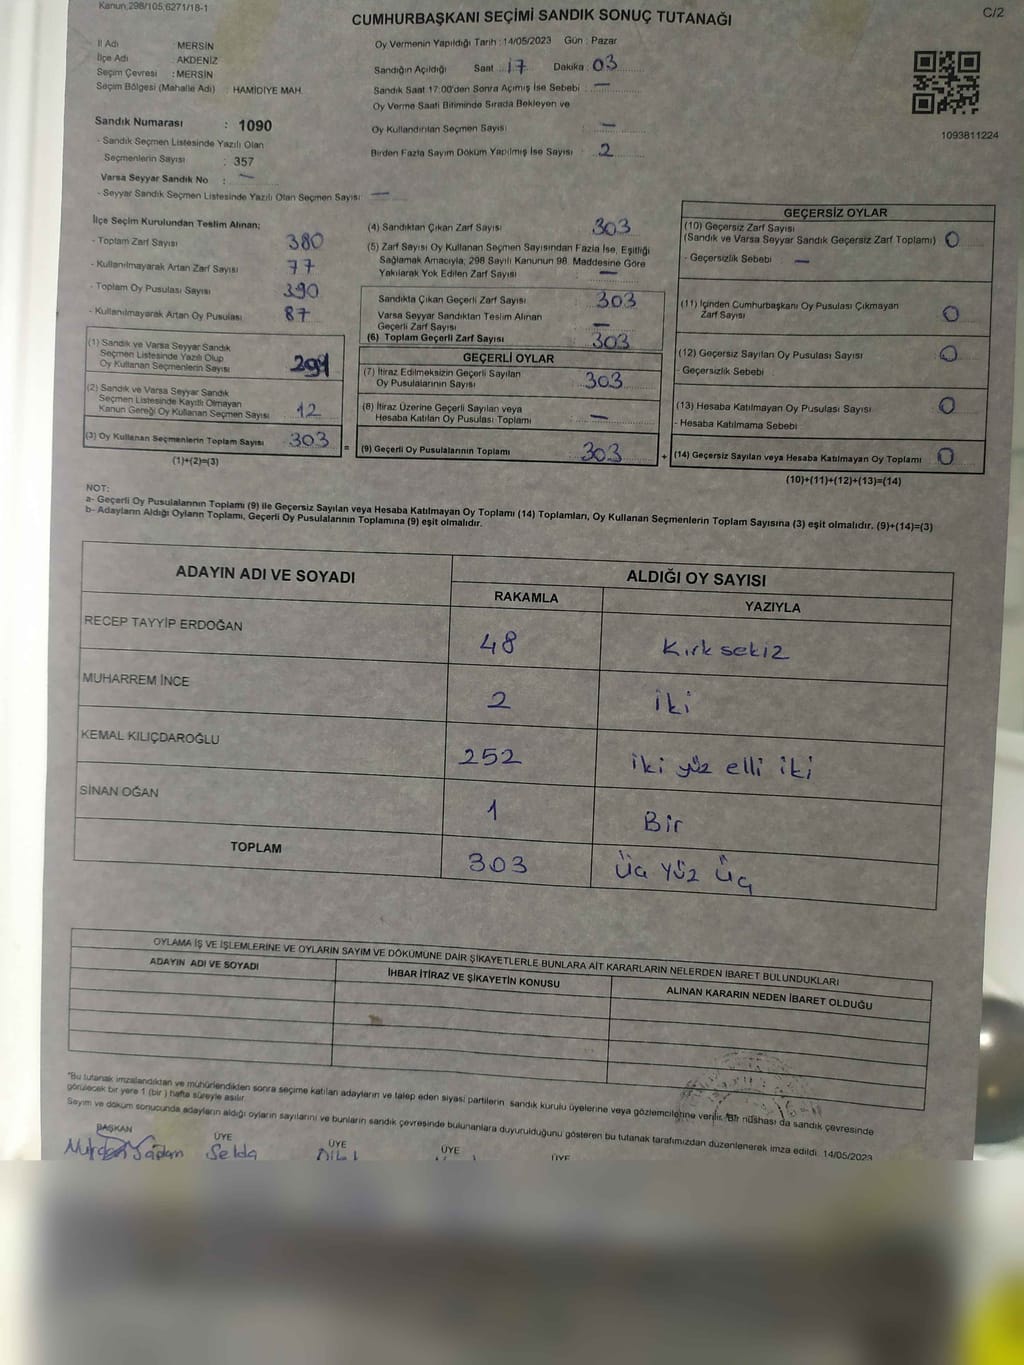 Kanun,298/105,6271/18-1
C/2
CUMHURBAŞKANI SEÇİMİ SANDIK SONUÇ TUTANAĞI
İl Adı MERSİN
İlçe Adı AKDENİZ
Seçim Çevresi : MERSİN
Seçim Bölgesi (Mahalle Adı) : HAMİDİYE MAH.
Sandık Numarası : 1090
- Sandık Seçmen Listesinde Yazılı Olan
Seçmenlerin Sayısı : 357
Varsa Seyyar Sandık No : —
- Seyyar Sandık Seçmen Listesinde Yazılı Olan Seçmen Sayısı —
Oy Vermenin Yapıldığı Tarih : 14/05/2023 Gün : Pazar
Sandığın Açıldığı Saat 17 Dakika : 03
Sandık Saat 17:00'den Sonra Açımış İse Sebebi : —
Oy Verme Saati Bitiminde Sırada Bekleyen ve
Oy Kullandırılan Seçmen Sayısı : —
Birden Fazla Sayım Döküm Yapılmış İse Sayısı : 2
1093811224
İlçe Seçim Kurulundan Teslim Alınan;
- Toplam Zarf Sayısı 380
- Kullanılmayarak Artan Zarf Sayısı 77
- Toplam Oy Pusulası Sayısı 390
- Kullanılmayarak Artan Oy Pusulası 87
(1) Sandık ve Varsa Seyyar Sandık
Seçmen Listesinde Yazılı Olup
Oy Kullanan Seçmenlerin Sayısı
(2) Sandık ve Varsa Seyyar Sandık
Seçmen Listesinde Kayıtlı Olmayan
Kanun Gereği Oy Kullanan Seçmen Sayısı 12
(3) Oy Kullanan Seçmenlerin Toplam Sayısı 303
(1)+(2)=(3)
(4) Sandıktan Çıkan Zarf Sayısı 303
(5) Zarf Sayısı Oy Kullanan Seçmen Sayısından Fazla İse, Eşitliği
Sağlamak Amacıyla, 298 Sayılı Kanunun 98. Maddesine Göre
Yakılarak Yok Edilen Zarf Sayısı : —
Sandıkta Çıkan Geçerli Zarf Sayısı : 303
Varsa Seyyar Sandıktan Teslim Alınan
Geçerli Zarf Sayısı : —
(6) Toplam Geçerli Zarf Sayısı : 303
GEÇERLİ OYLAR
(7) İtiraz Edilmeksizin Geçerli Sayılan
Oy Pusulalarının Sayısı : 303
(8) İtiraz Üzerine Geçerli Sayılan veya
Hesaba Katılan Oy Pusulası Toplamı : —
= (9) Geçerli Oy Pusulalarının Toplamı : 303
GEÇERSİZ OYLAR
(10) Geçersiz Zarf Sayısı
(Sandık ve Varsa Seyyar Sandık Geçersiz Zarf Toplamı) 0
- Geçersizlik Sebebi : —
(11) İçinden Cumhurbaşkanı Oy Pusulası Çıkmayan
Zarf Sayısı 0
(12) Geçersiz Sayılan Oy Pusulası Sayısı 0
- Geçersizlik Sebebi :
(13) Hesaba Katılmayan Oy Pusulası Sayısı 0
- Hesaba Katılmama Sebebi
+ (14) Geçersiz Sayılan veya Hesaba Katılmayan Oy Toplamı 0
(10)+(11)+(12)+(13)=(14)
NOT:
a- Geçerli Oy Pusulalarının Toplamı (9) ile Geçersiz Sayılan veya Hesaba Katılmayan Oy Toplamı (14) Toplamları, Oy Kullanan Seçmenlerin Toplam Sayısına (3) eşit olmalıdır. (9)+(14)=(3)
b- Adayların Aldığı Oyların Toplamı, Geçerli Oy Pusulalarının Toplamına (9) eşit olmalıdır.
ADAYIN ADI VE SOYADI ALDIĞI OY SAYISI
RAKAMLA YAZIYLA
RECEP TAYYİP ERDOĞAN 48 Kırk sekiz
MUHARREM İNCE 2 İki
KEMAL KILIÇDAROĞLU 252 iki yüz elli iki
SİNAN OĞAN 1 Bir
TOPLAM 303 Üç Yüz Üç
OYLAMA İŞ VE İŞLEMLERİNE VE OYLARIN SAYIM VE DÖKÜMÜNE DAİR ŞİKAYETLERLE BUNLARA AİT KARARLARIN NELERDEN İBARET BULUNDUKLARI
ADAYIN ADI VE SOYADI İHBAR İTİRAZ VE ŞİKAYETİN KONUSU ALINAN KARARIN NEDEN İBARET OLDUĞU
"Bu tutanak imzalandıktan ve mühürlendikten sonra seçime katılan adayların ve talep eden siyasi partilerin sandık kurulu üyelerine veya gözlemcilerine verilir. Bir nüshası da sandık çevresinde
görülecek bir yere 1 (bir) hafta süreyle asılır.
Sayım ve döküm sonucunda adayların aldığı oyların sayılarını ve bunların sandık çevresinde bulunanlara duyurulduğunu gösteren bu tutanak tarafımızdan düzenlenerek imza edildi. 14/05/2023
BAŞKAN ÜYE ÜYE ÜYE ÜYE
Selda